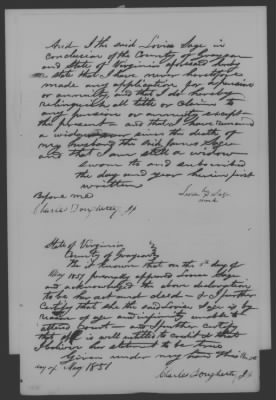 And I the said Lovisa Sage in
conclusion of the County of Grayson
and State of Virginia aforesaid hereby
state that I have never heretofore
made any application for a pension
or annuity and that I do hereby
relinquish all title or claims to
any pension or annuity except
the present and that I have remained
a widow ever since the death of
my husband the said James Sage
and that I am still a widow
sworn to and subscribed
the day and year herein first
written
Before me
Lovisa Sage
mark
Charles Dougherty JP
State of Virginia
County of Grayson
Be it known that on the day of
May 1851 personally appeared Lovisa Sage
and acknowledged the above declaration
to be her act and deed & I further
Certify that she the said Lovisa Sage is by
reason of age and infirmity unable to
attend Court and I further certify
that she is well entitled to credit & that
I believe her statement to be true
Given under my hand this the
day of May 1851
Charles Dougherty JP